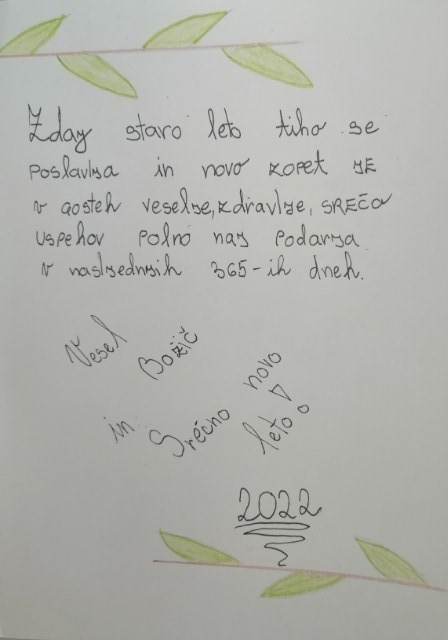 Zdaj staro leto tiho se
poslavlja in novo zopet JE
v gosteh veselje, zdravlje, SREČA
uspehov polno naj podarja
v nasljednjih 365-ih dneh.
Vesel Božič
in Srečno novo leto!
2022